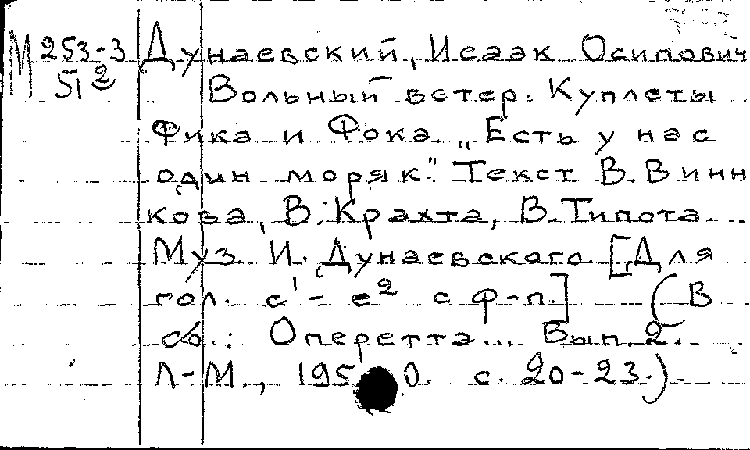 М 253-3 Дунаевский, Исаак Осипович
51² Вольный ветер. Куплеты
Фика и Фока „Есть у нас
один моряк". Текст В. Винн
кова, В. Крахта, В. Типота.
Муз. И. Дунаевского. [Для
гол. c¹ - e² с ф-п.] (В
сб.: Оперетта... Вып. 2.
Л-М., 1950. с. 20-23.)